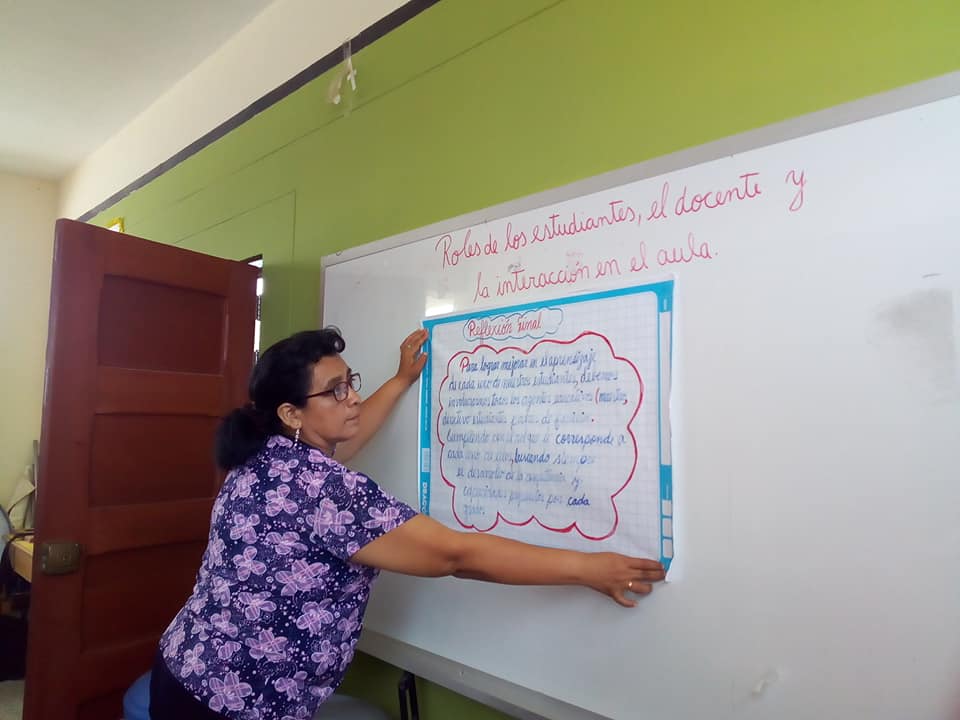 Roles de los estudiantes, el docente y
la interacción en el aula.
Reflexión Final
Para lograr mejorar en el aprendizaje
de cada uno de nuestros estudiantes, debemos
involucrarnos todos los agentes educativos (maestros,
directivo estudiantes padres de familia.
Cumpliendo con el rol que le corresponde a
cada uno de ellos, buscando siempre
el desarrollo de la competencia y
capacidades por cada
grado.